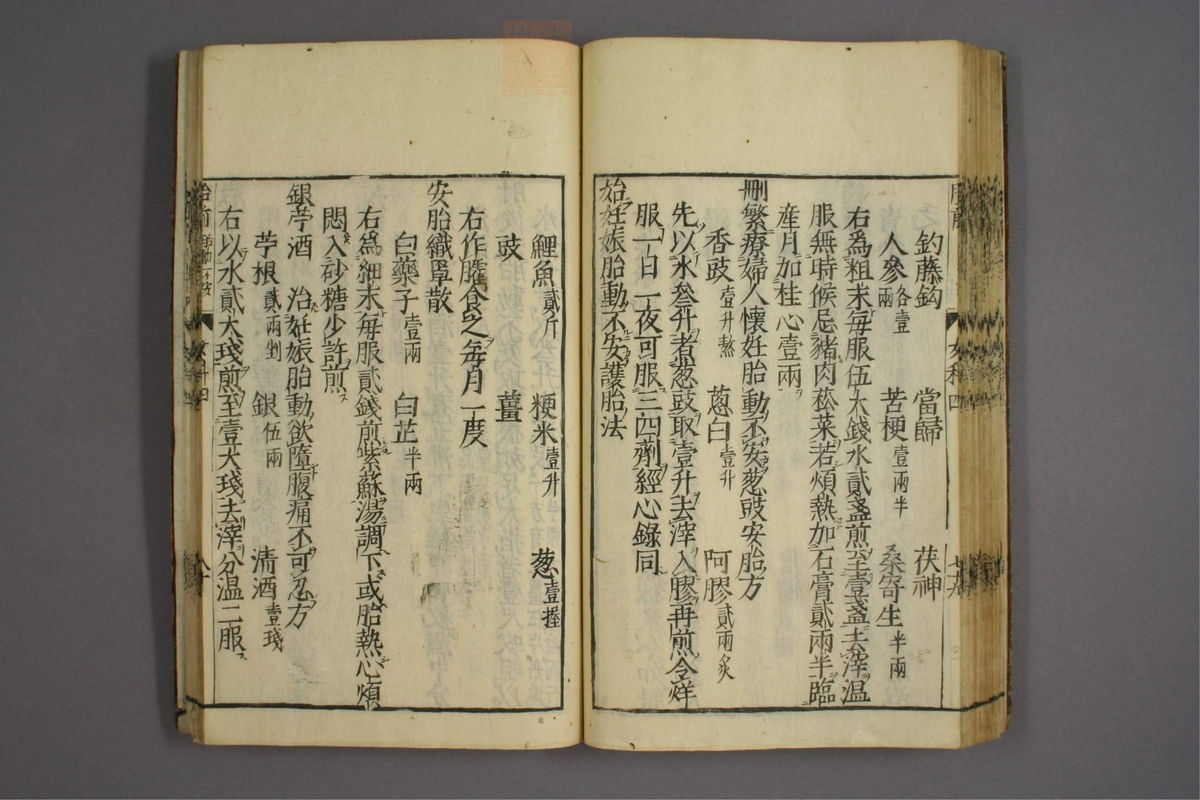 釣藤鈎 當歸 茯神
人參各壹兩 苦梗壹兩半 桑寄生半兩
右爲粗末每服伍大錢水貳盞煎至壹盞去滓温
服無時候忌豬肉菘菜若煩熱加石膏貳兩半臨
産月加桂心壹兩
刪繁療婦人懷妊胎動不安葱豉安胎方
香豉壹升熬 葱白壹升 阿膠貳兩炙
先以水叁升者葱豉取壹升去滓入膠再煎令烊
服一日一夜可服三四劑經心錄同
始妊娠胎動不安護胎法
鯉魚貳斤 粳米壹升 葱壹握
豉 薑
右作臛食之每月一度
安胎鐵罩散
白藥子壹兩 白芷半兩
右爲細末每服貳錢煎紫蘇湯調下或胎熱心煩
悶入砂糖少許煎
銀苧酒 治妊娠胎動欲墮腹痛不可忍方
苧根貳兩剉 銀伍兩 清酒壹琖
右以水貳大琖煎至壹大琖去滓分温二服